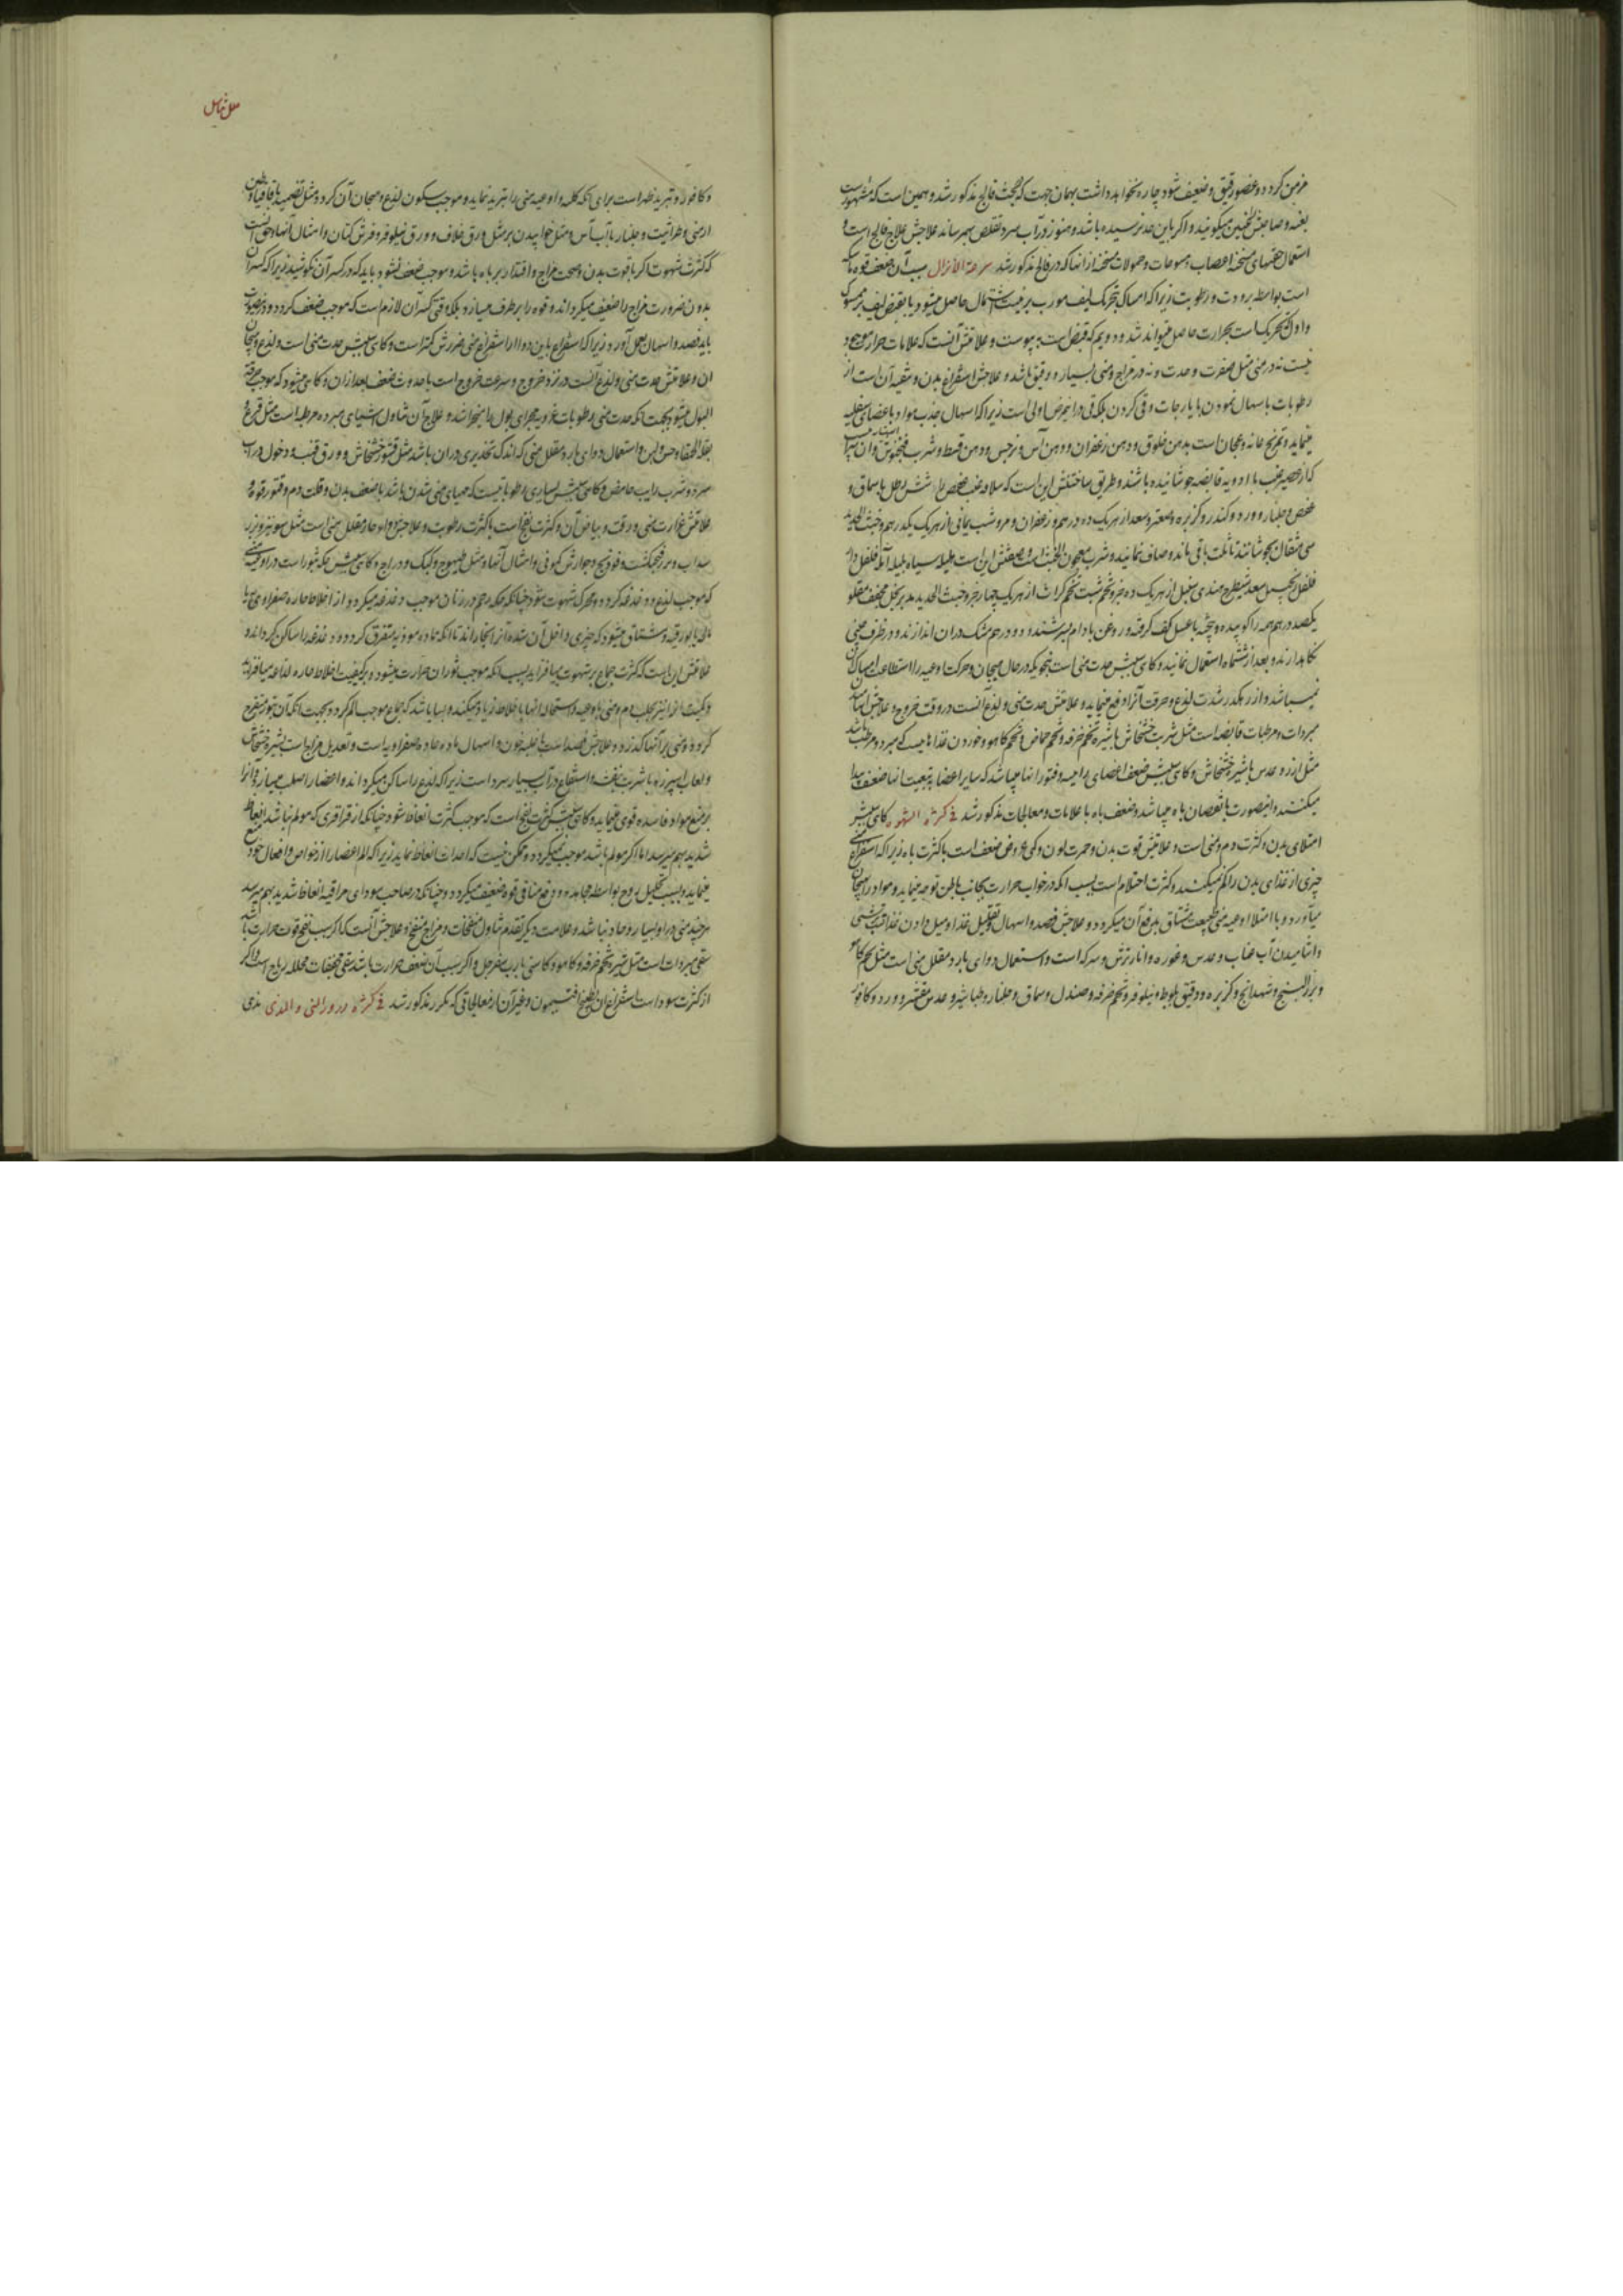 مزمن کردد و عضو رقیق و ضعیف شود چاره نخواهد داشت بهمان جهت که در بحث فالج مذکور شد و همین است که مشهور است
بعنه و صاحبش را عنین میکویند و اکر باین حد نرسیده باشد و هنوز در آب سرد تقلص بهم رساند علاجش علاج فالج است و
استعمال حقنهای مسخنه اعصاب و مسوحات و حمولات مسخنه از آنها که در فالج مذکور شد سرعة الانزال سبب آن ضعف قوه ماسکه
است بواسطه برودت و رطوبت زیرا که امساک بتحریک لیف مورب بر هیئت اشتمال حاصل میشود یا بقبض لیف بر ممسوک
و اول تحریک است بحرارت حاصل میتواند شد و دویم که قبض است به یبوست و علامتش آنست که علامات حرارت موجود
نیست نه در منی مثل صفرت و حدت و نه در مزاج و منی بسیار و رقیق باشد و علاجش استفراغ بدن و تنقیه آن است از
رطوبات باسهال نمودن بایارجات و قی کردن بلکه قی در این مرض اولی است زیرا که اسهال جذب مواد باعضای سفلیه
مینماید و تمریخ عانه و عجان است بدهن خلوق و دهن زعفران و دهن آس و نرجس و دهن قسط و شرب
که از عصیر عنب با ادویه قابضه جوشانیده باشند و طریق ساختنش این است که
عفص و جلنار و ورد و کندر و کزبره و صعتر و سعد از هر یک ده درهم و زعفران و مر و شب یمانی از هر یک یکدرهم و خبث الحدید
سی مثقال بجوشانند تا ثلث باقی ماند و صاف نمایند و شرب معجون الخبث است و صفتش این است هلیله سیاه بلیله آمله فلفل دار
فلفل زنجبیل سعد شیطرج هندی سنبل از هر یک ده جزو تخم شبت تخم کراث از هر یک چهار جزو خبث الحدید مدبر بخل مجفف مقلو
یکصد درهم همه را کوبیده و بیخته با عسل کف کرفته و روغن بادام بسرشند و دو درهم مشک در آن اندازند و در ظرف چینی
نکاهدارند و بعد از ششماه استعمال نمایند و کاهی سببش حدت منی است بنحویکه در حال هیجان و حرکت اوعیه را استطاعت امساک آن
نمیباشد و از رهکذر شدت لذع و حرقت آنرا دفع مینماید و علامتش حدت منی و لذع آنست در وقت خروج و علاجش
مبردات و مرطبات قابضه است مثل شربت خشخاش با شیره تخم خرفه و تخم حماض و تخم کاهو و خوردن غذاهاییست که مبرد و مرطب باشد
مثل ارز و عدس با شیره خشخاش و کاهی سببش ضعف اعضای رئیسه و فتور آنها میباشد که سایر اعضا به تبعیت آنها ضعف پیدا
میکنند و اینصورت با نقصان باه میباشد و ضعف باه با علامات و معالجات مذکور شد فی کثرة الشهوه کاهی سببش
امتلای بدن و کثرت دم و منی است و علامتش قوت بدن و حمرت لون و کمی عروض ضعف است با کثرت باه زیرا که استفراغ منی
چیزی از غذای بدن را کم میکند و کثرت احتلام است بسبب آنکه در خواب حرارت بجانب باطن توجه مینماید و مواد را بهیجان
میآورد و با امتلاء اوعیه منی طبیعت مشتاق بدفع آن میکردد و علاجش فصد و اسهال و تقلیل غذا و میل دادن غذا بترشی
و آشامیدن آب عناب و عدس و غوره و انار ترش و سرکه است و استعمال دوای بارد مقلل منی است مثل تخم کاهو
و بزر البنج و شهدانج و کزبره و دقیق بلوط و نیلوفر و تخم خرفه و صندل و سماق و جلنار و طباشیر و عدس مقشر و ورد و کافور
علل تناسل
و کافور و تبرید ظهر است برای آنکه کلیه و اوعیه منی را تبرید نماید و موجب سکون لذع و هیجان آن کردد و مثل تضمید باقاقیا و طین
ارمنی و طراثیث و جلنار با آب آس و مثل خوابیدن بر مثل ورق خلاف و ورق نیلوفر و فرش کتان و امثال آنها و حق آنست
که کثرت شهوت اکر با قوت بدن و صحت مزاج و اقتدار بر باه باشد و موجب ضعف نشود باید که در کسر آن نکوشید زیرا که کسر آن
بدون ضرورت مزاج را ضعیف میکرداند و قوه را بر طرف میسازد بلکه وقتی کسر آن لازم است که موجب ضعف کردد و در اینصورت
باید فصد و اسهال بعمل آورد زیرا که استفراغ باین دو از استفراغ منی ضررش کمتر است و کاهی سببش حدت منی است و لذع و هیجان
آن و علامتش حدت منی و لذع آنست در نزد خروج و سرعت خروج است با حدوث ضعف بعد از آن و کاهی میشود که موجب حرقة
البول میشود بجهت آنکه حدت منی رطوبات غدویه مجرای بول را میخراشد و علاج آن تناول اشیای مبرده مرطبه است مثل قرع و
بقلة الحمقاء و خس و لبن و استعمال دوای بارد مقلل منی که اندک تخدیری در آن باشد مثل قشور خشخاش و ورق قنب و دخول در آب
سرد و شرب رایب حامض و کاهی سببش بسیاری رطوباتیست که مهیای منی شدن باشد با ضعف بدن و قلت دم و فتور قوه و
علامتش غزارت منی و رقت و بیاض آن و کثرت نفخ است با کثرت رطوبت و علاجش ادویه حار مقلل منی است مثل شونیز و بزر
سداب و بزر فنجنکشت و فودنج و جوارش کمونی و امثال آنها و مثل طیهوج و کبک و دراج و کاهی سببش حکه و بثور است در اوعیه منی
که موجب لذع و دغدغه کردد و محرک شهوت شود چنانکه حکه رحم در زنان موجب دغدغه میکردد از اخلاط حاره صفراوی یا
مالحه یا بورقیه و مشتاق میشود که چیزی داخل آن شده آنرا بخاراند تا آنکه ماده موذیه متفرق کردد و دغدغه را ساکن کرداند و
علامتش این است که کثرت جماع بر شهوت بیافزاید بسبب آنکه موجب ثوران حرارت میشود و بر کیفیت اخلاط حاره لذاعه میافزاید
و کمیت آنرا نیز بجلب دم و منی باوعیه و استحاله آنها باخلاط زیاد میکند و بسا باشد که جماع موجب الم کردد بجهت آنکه آن بثور متقرح
کردد و منی بر آنها کذرد و علاجش فصد است با غلبه خون و اسهال ماده حاده صفراویه است و تعدیل مزاج است بشیر خشخاش
و لعاب اسپرزه با شربت بنفشه و استنقاع در آب بسیار سرد است زیرا که لذع را ساکن میکرداند و اعضا را صلب میسازد و آنرا
بر منع مواد فاسده قوی مینماید و کاهی سببش کثرت نفخ است که موجب کثرت انعاظ شود چنانکه از قراقری که مولم نباشد انعاظ
شدید بهم میرسد اما اکر مولم باشد موجب نمیکردد و ممکن نیست که احداث انعاظ نماید زیرا که الم اعضا را از خواص و افعال خود منع
مینماید و بسبب تحلیل روح بواسطه مجاهده و دفع منافی قوه ضعیف میکردد و چنانکه در صاحب سودای مراقیه انعاظ شدید بهم میرسد
هر چند منی در او بسیار و حاد نباشد و علامت دیکر تقدم تناول منفخات و مزاج منفخ و علاجش آنست که اکر سبب نفخ قوت حرارت باشد
سقی مبردات است مثل شیره تخم خرفه و کاهو و کاسنی با رب سفرجل و اکر سبب آن ضعف حرارت باشد سقی مجففات محلله ریاح است و اکر
از کثرت سودا است استفراغ آن بطبیخ افتیمون و غیر آن از معالجاتی که مکرر مذکور شد فی کثرة درور المنی و المذی مذی